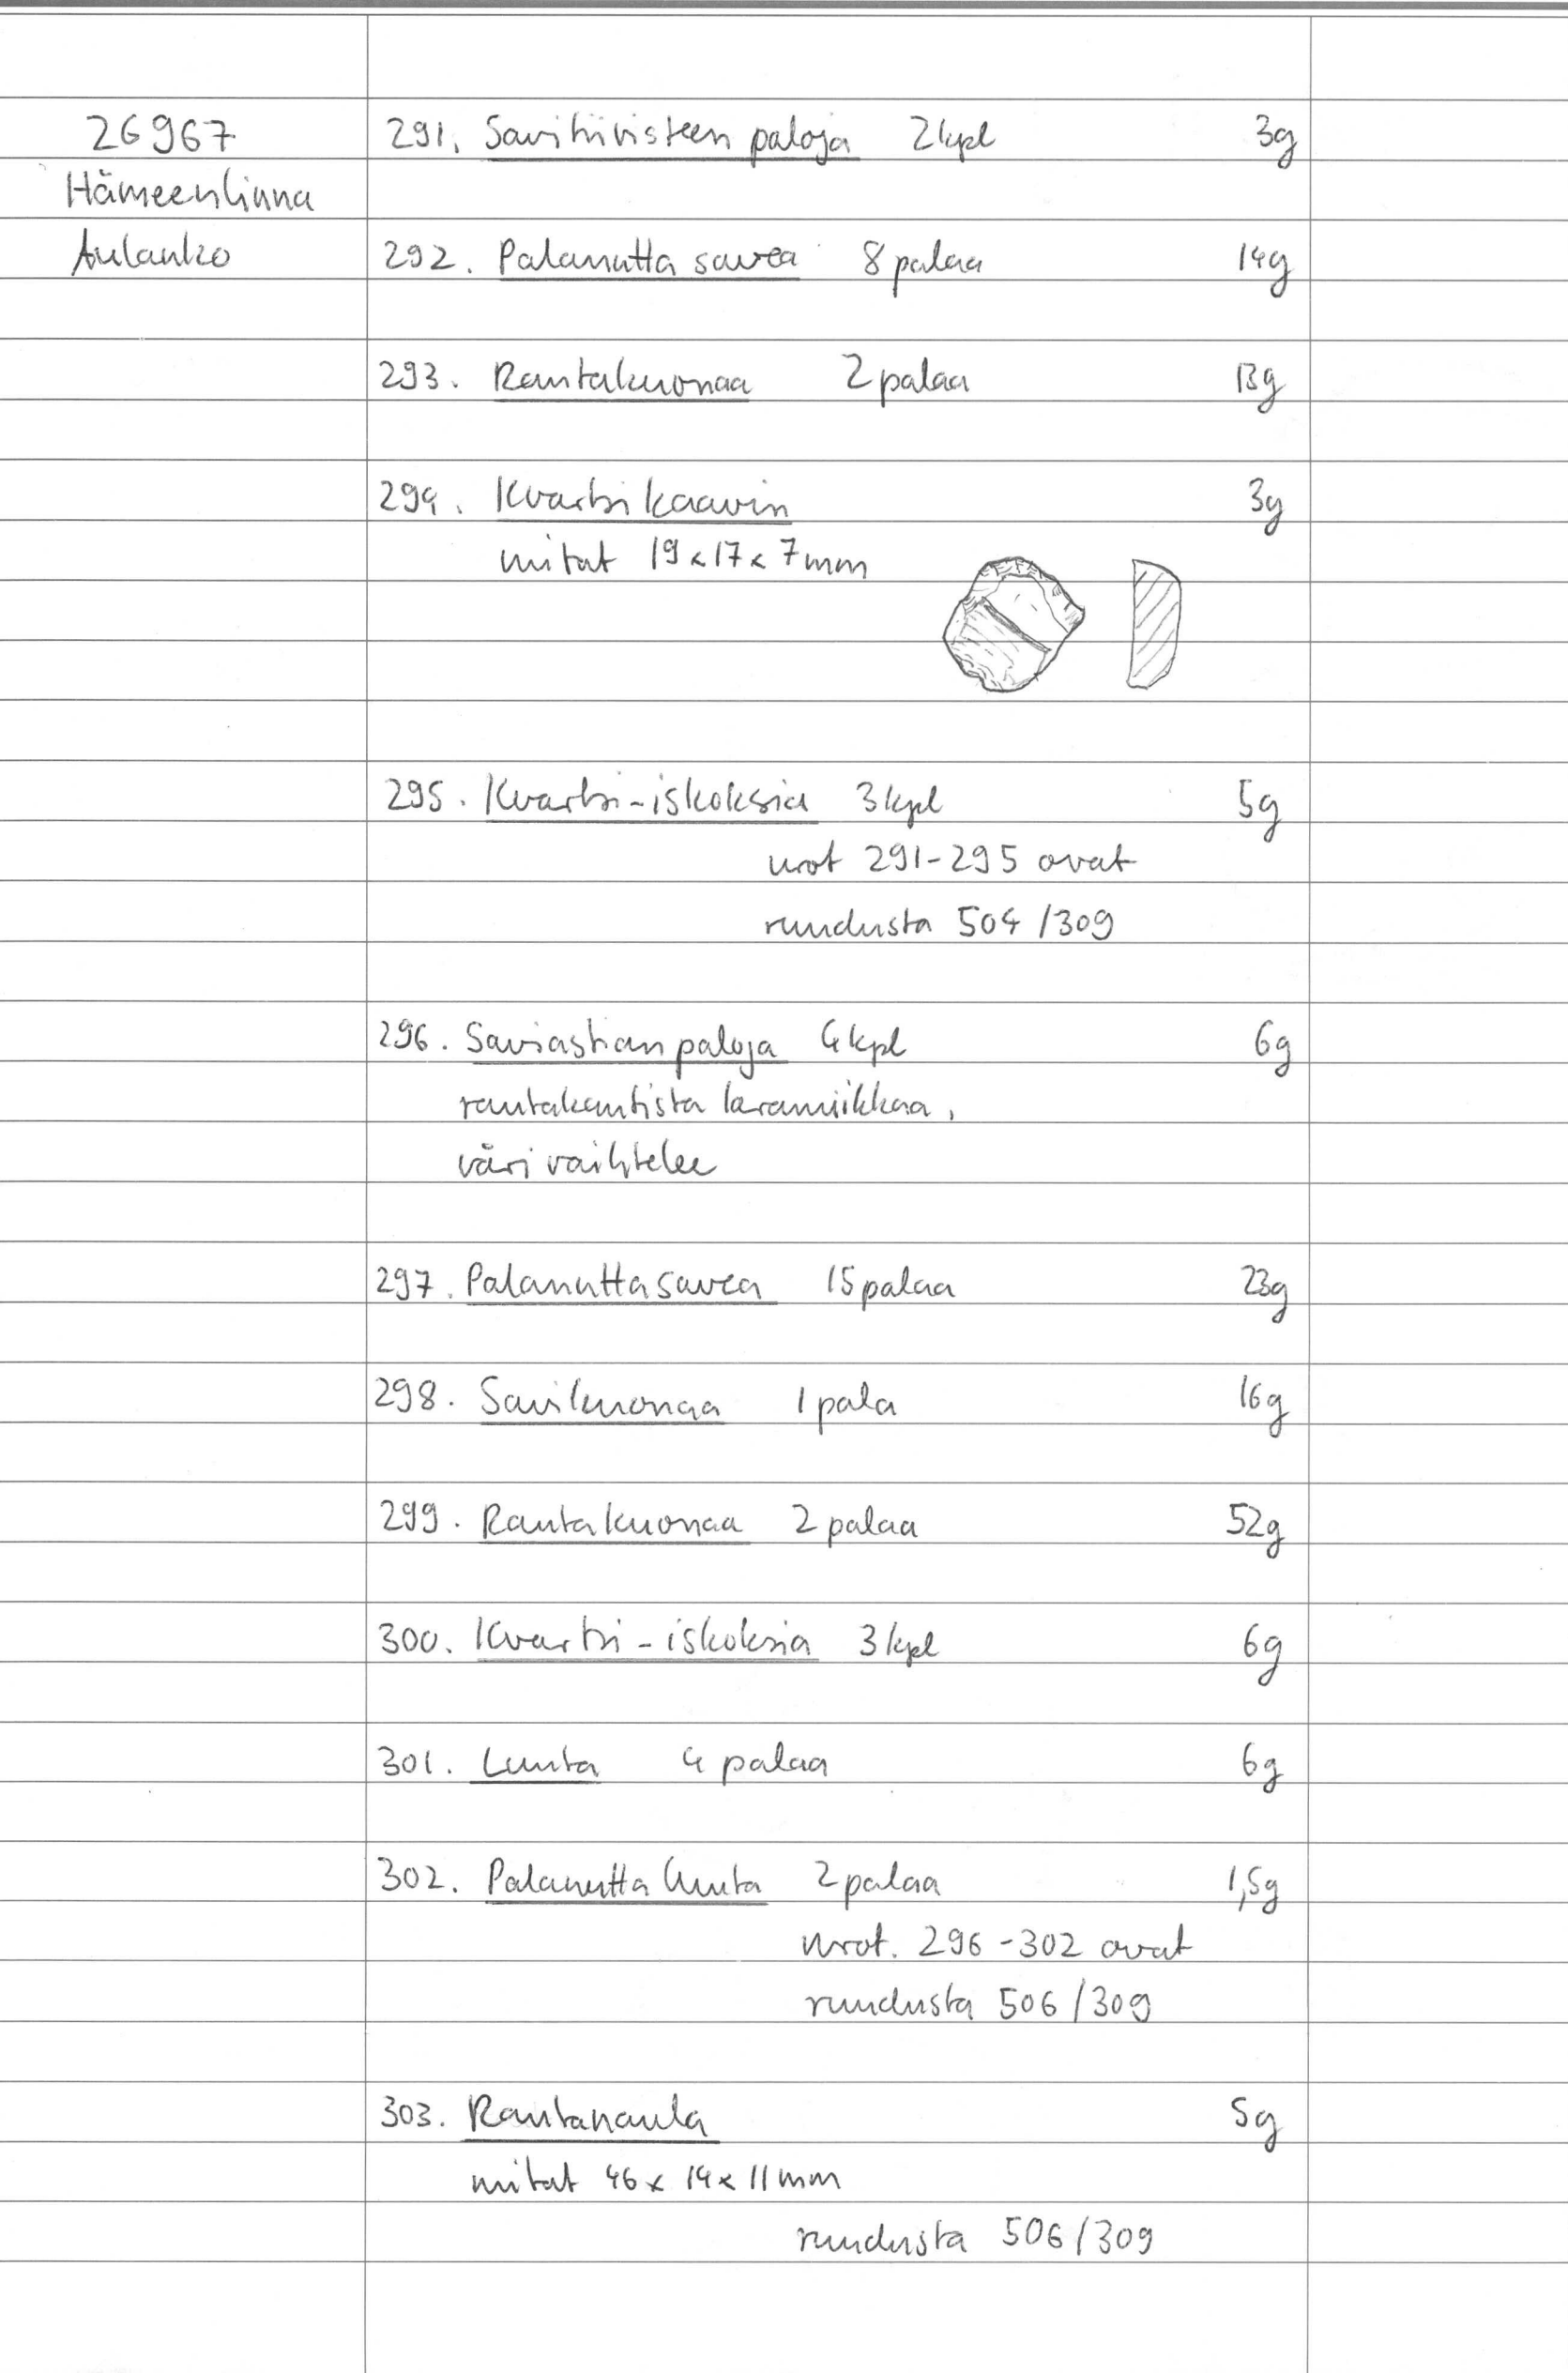 26967
Hämeenlinna
Aulanko
291. Savitiivisteen paloja 2 kpl 3g
292. Palanutta savea 8 palaa 14g
293. Rautakuonaa 2 palaa 13g
294. Kvartsikaavin 3g
mitat 19x17x7mm
295. Kvartsi-iskoksia 3 kpl 5g
nrot 291-295 ovat
ruudusta 504/309
296. Saviastian paloja 4 kpl 6g
rautakautista keramiikkaa,
väri vaihtelee
297. Palanutta savea 15 palaa 23g
298. Savikuonaa 1 pala 16g
299. Rautakuonaa 2 palaa 52g
300. Kvartsi-iskoksia 3 kpl 6g
301. Luuta 4 palaa 6g
302. Palanutta luuta 2 palaa 1,5g
nrot. 296-302 ovat
ruudusta 506/309
303. Rautanaula 5g
mitat 46x14x11mm
ruudusta 506/309